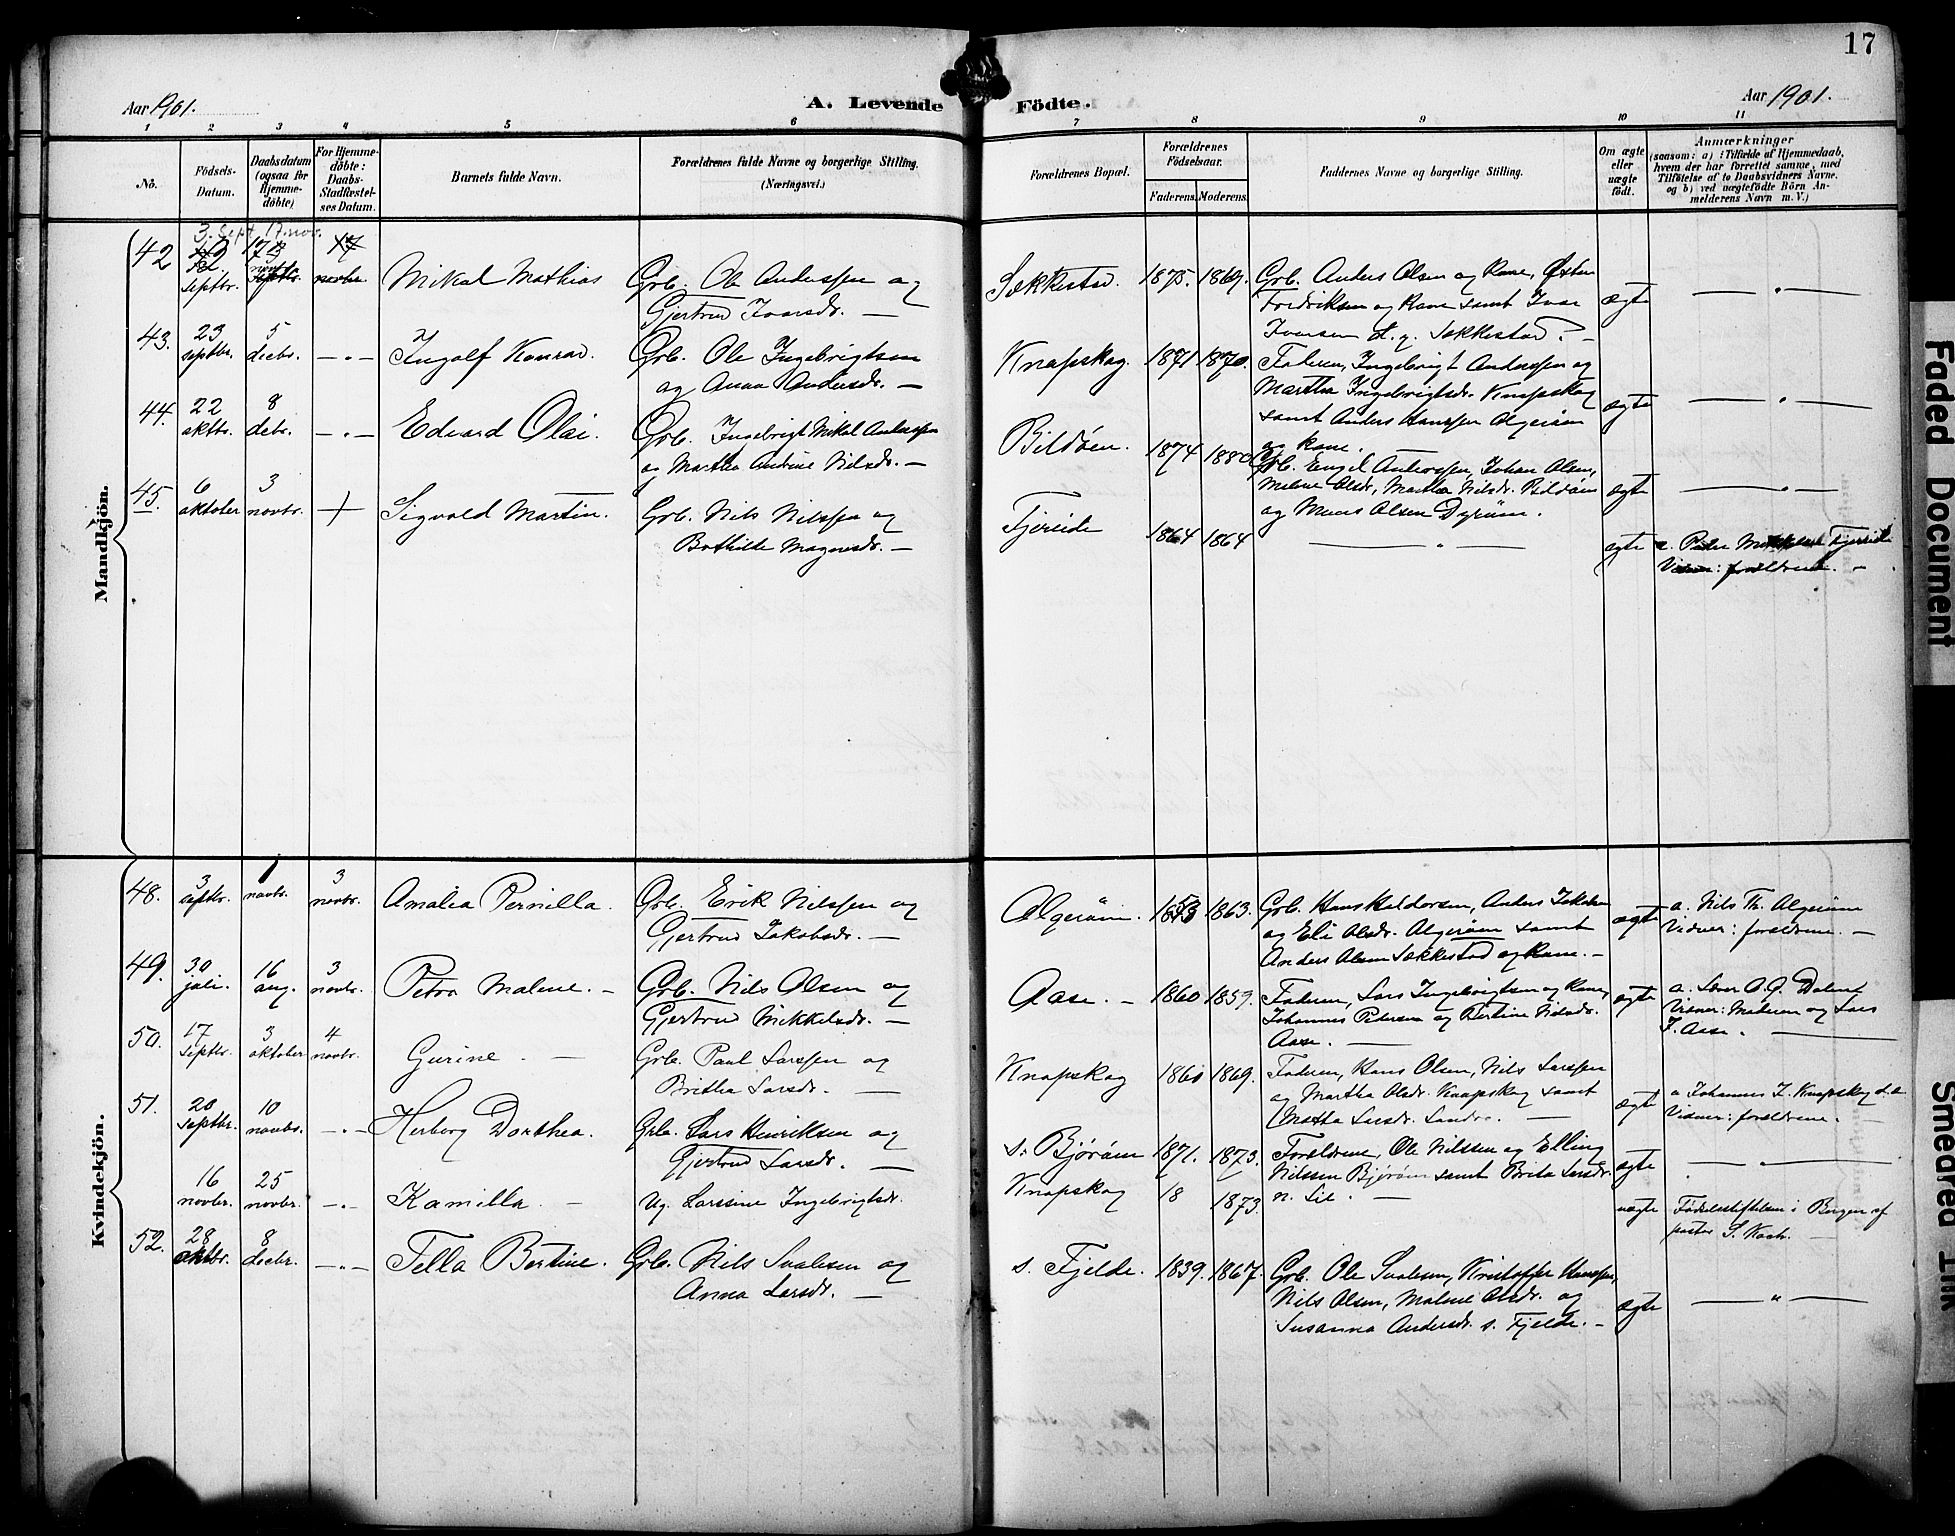 17
Aar 1901.
A. Levende Födte.
Aar 1901.
1 2 3 4 5 6 7 8 9 10 11
No.
Födsels-Datum.
Daabsdatum (ogsaa for Hjemme-döbte)
For Hjemme-döbte: Daabs-Stadfæstel-ses Datum.
Barnets fulde Navn.
Forældrenes fulde Navne og borgerlige Stilling.
(Næringsvei.)
Forældrenes Bopæl.
Forældrenes Födselsaar.
Faderens. Moderens.
Faddernes Navne og borgerlige Stilling.
Om ægte eller uægte födt.
Anmærkninger
(saasom: a) i Tilfælde af Hjemmedaab,
hvem der har forrettet samme, med
Tilföielse af to Daabsvidners Navne,
og b) ved uægtefödte Börn An-
melderens Navn m. V.)
Mandkjön.
3. Sept. 17. nov.
42 septbr. novbr. Mikal Mathias Grb. Ole Anderssen og
Gjertrud Ivarsdr. —
Sækkestad 1875. 1869. Grb. Anders Olsen og Kone, Østen
Fredriksen og Kone samt Ivar
Ivarsen d. y. Sækkestad. —
ægte — " —
43. 23 septbr. 5 decbr. — " — Ingolf Konrad. Grb. Ole Ingebrigtsen
og Anna Andersdr. —
Knapskog. 1871 1870. Faderen, Ingebrigt Anderssen og
Martha Ingebrigtsdr. Knapskog
samt Anders Hanssen Algerøen
og kone. —
ægte — " —
44. 22 oktbr. 8 debr. — " — Edvard Olai. Grb. Ingebrigt Mikal Anderssen
og Martha Andrine Nilsdr. —
Bildöen. 1874 1880 Grb. Engel Anderssen, Johan Olsen,
Malene Olsdr, Martha Nilsdr. Bildöen
og Mons Olsen Dyröen.
ægte — " —
45. 6 oktober 3 novbr. + Sigvald Martin. Grb. Nils Nilssen og
Bothilde Magnesdr. —
Fjereide 1864 1864 — " —
ægte a. Peder Mikkelsen Fjereide
Vidner: forældrene. —
Kvindekjön.
48. 3 septbr. 1 novbr. 3 novbr. Amalia Pernilla. Grb. Erik Nilssen og
Gjertrud Jakobsdr. —
Algeröen. 1853 1863. Grb. Hans Haldorsen, Anders Jakobsen
og Eli Olsdr. Algeröen samt
Anders Olsen Sækkestad og Kone. —
ægte a. Nils Th. Algeröen
Vidner: forældrene. —
49. 30 juli. 16 aug. 3 novbr. Petra Malene. — Grb. Nils Olsen og
Gjertrud Mikkelsdr. —
Aase. — 1860 1859. Faderen, Lars Ingebrigtsen og Kone,
Johannes Petersen og Bertine Nilsdr.
Aase. —
ægte a. Lærer A. G. Dalene
Vidner: Moderen og Lars
I. Aase. —
50. 17 septbr. 3 oktober 4 novbr. Gurine. — Grb. Paul Larssen og
Britha Larsdr. —
Knapskog 1860 1869. Faderen, Hans Olsen, Nils Larssen
og Martha Olsdr. Knapskog samt
Martha Larsdr. Landro. —
ægte a Johannes J. Knapskog d. æ.
Vidner: forældrene. —
51. 20 septbr. 10 novbr. — " — Herborg Dorthea. Grb. Lars Henriksen og
Gjertrud Larsdr. —
s. Björöen 1871. 1873. Forældrene, Ole Nilssen og Elling
Nilssen Björöen samt Brita Larsdr.
n. Lie. —
ægte — " —
16 novbr. 25 novbr. — " — Kamilla — Ug. Larssine Ingebrigtsdr.
Knapskog 18 1873.
uægte Fødselsstiftelsen i Bergen af
pastor S. Koch. —
52. 28 oktbr. 8 decbr. — " — Tella Bertine. Grb. Nils Svalesen og
Anna Larsdr. —
s. Fjelde. 1839. 1867. Grb. Ole Svalesen, Kristoffer Hanssen,
Nils Olsen, Malene Olsdr. og
Susanna Andersdr. s. Fjelde. —
ægte — " —
Faded Document
Smeared Ink